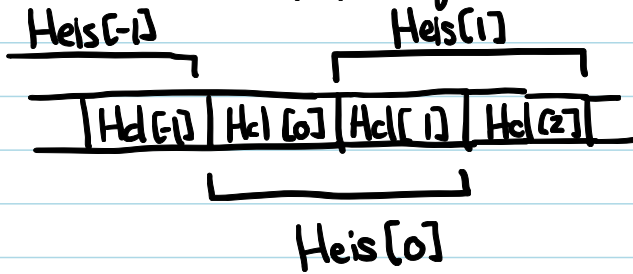 Heis[-1] Heis[1]
Hcl[-1] Hcl[0] Hcl[1] Hcl[2]
Heis[0]